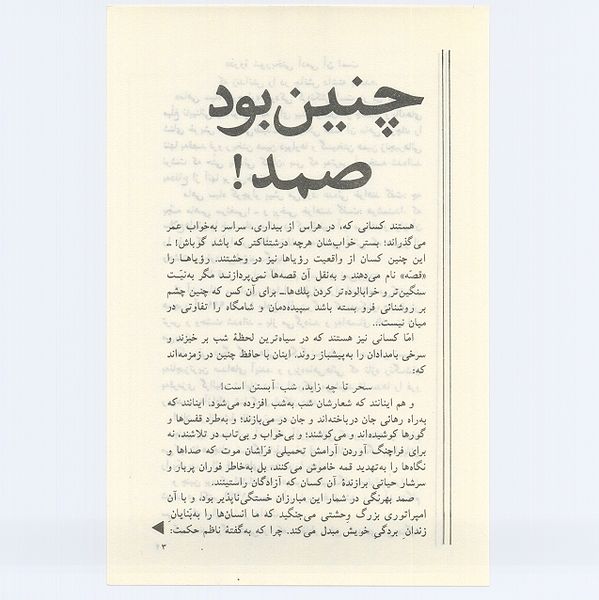 چنین بود
صمد!
هستند کسانی که، در هراس از بیداری، سراسر به‌خواب عمر
می‌گذراند؛ بستر خواب‌شان هرچه درشتناکتر که باشد گو‌باش! ـ
این چنین کسان از واقعیت رؤیاها نیز در وحشتند. رؤیاهـا را
«قصّه» نام می‌دهند و به‌نقل آن قصه‌ها نمی‌پردازنـد مگر به‌نیّـت
سنگین‌تر و خرابالوده‌تر کردن پلك‌ها ـ برای آن کس که چنین چشم
بر روشنائی فرو بسته باشد سپیده‌دمان و شامگاه را تفاوتی در
میان نیست...
امّا کسانی نیز هستند که در سیاه‌ترین لحظۀ شب بر خیزند و
سرخی بامدادان را به‌پیشباز روند. اینان با حافظ چنین در زمزمه‌اند
که:
سحر تا چه زاید، شب آبستن است!
و هم اینانند که شعارشان شب به‌شب افزوده می‌شود. اینانند که
به‌راه رهائی جان درباخته‌اند و جان در می‌بازند؛ و به‌طرد قفس‌ها و
گورها کوشیده‌اند و می‌کوشند؛ و بی‌خواب و بی‌تاب در تلاشند، نه
برای فراچنگ آوردن آرامش تحمیلی فرّاشان موت که صداها و
نگاه‌ها را به‌تهدید قمه خاموش می‌کنند، بل به‌خاطر فوران پربار و
سرشار حیاتی برازندۀ آن کسان که آزادگان راستینند.
صمد بهرنگی در شمار این مبارزان خستگی‌ناپذیر بود، و با آن
امپراتوری بزرگ وحشتی می‌جنگید که ما انسان‌ها را به‌بَنایانِ
زندان بردگی خویش مبدل می‌کند. چرا که به‌گفتۀ ناظم حکمت:
۳